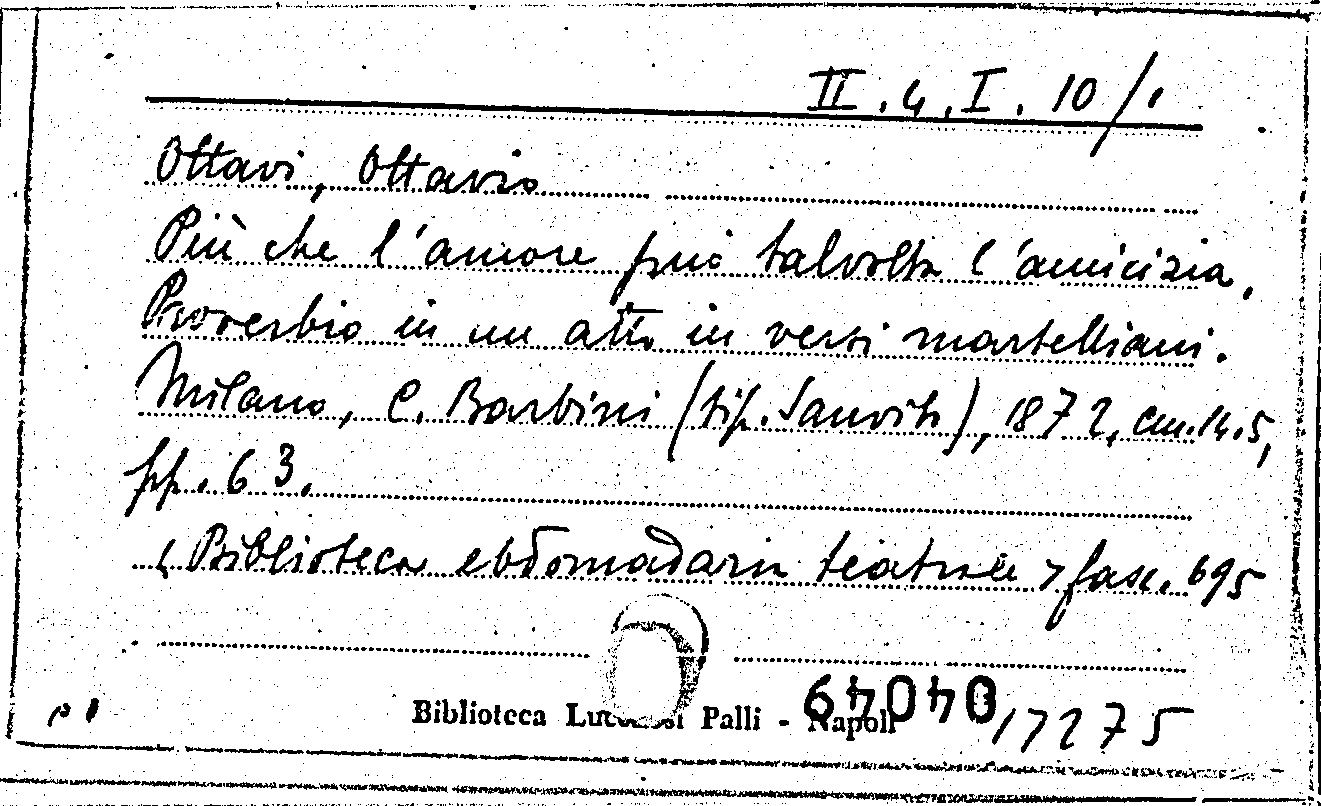 II.4.I.10/1
Ottavi, Ottavio
Più che l'amore può talvolta l'amicizia,
Proverbio in un atto in versi martelliani.
Milano, C. Barbini (tip. Sanvito), 1872, cm.14.5,
pp. 63.
< Biblioteca ebdomadaria teatrale > fasc. 695
Biblioteca Lucchesi Palli - Napoli
64040
17275